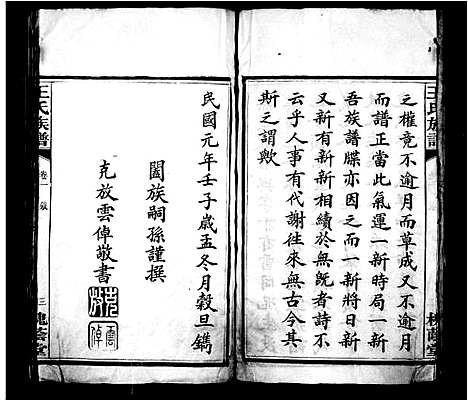 王氏族譜
之權竟不逾月而草成又不逾月
而譜正當此氣運一新時局一新
吾族譜牒亦因之而一新將日新
又新有新新相續於無旣者詩不
云乎人事有代謝往來無古今其
斯之謂歟
槐蔭堂
民國元年壬子歲孟冬月穀旦鐫
闔族嗣孫謹撰
克放雲倬敬書
王氏族譜
卷一
三
槐蔭堂